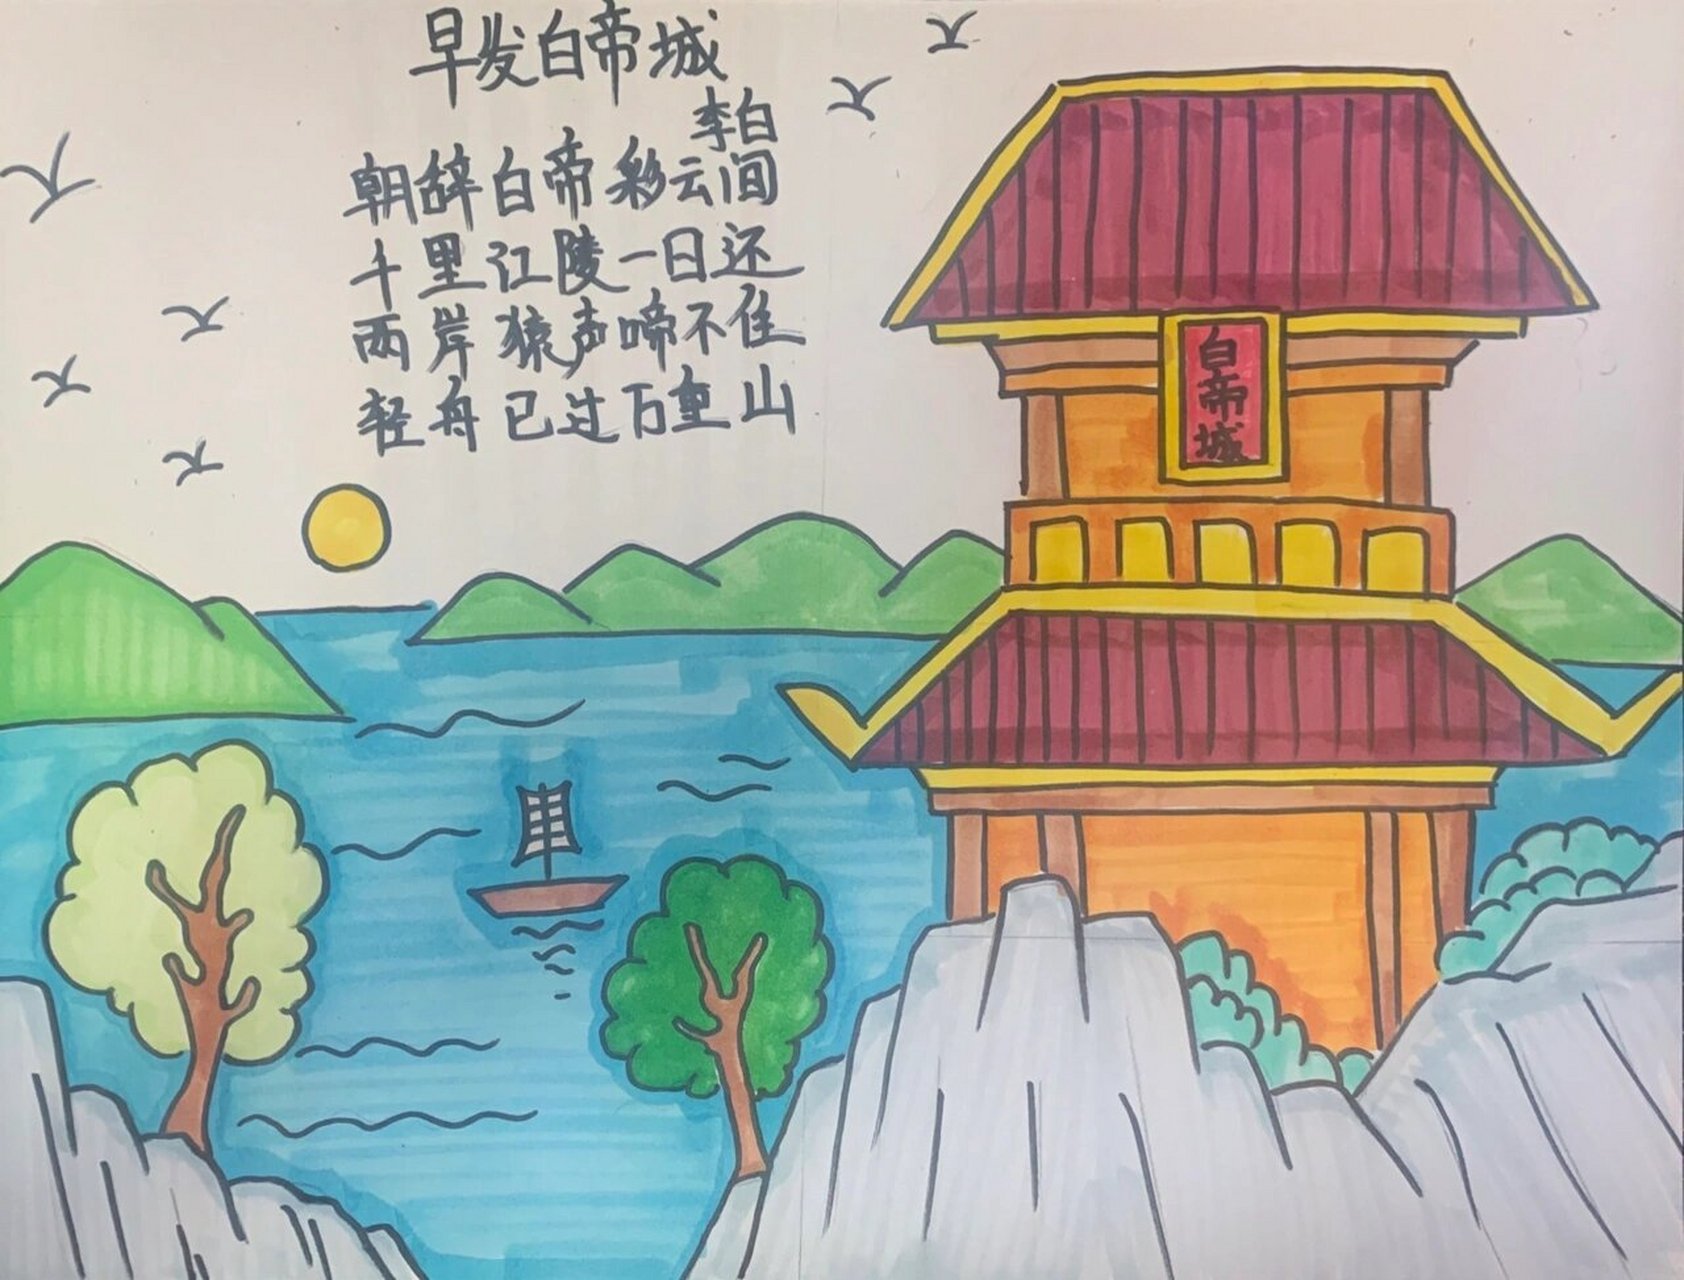 早发白帝城
李白
朝辞白帝彩云间
千里江陵一日还
两岸猿声啼不住
轻舟已过万重山
白帝城